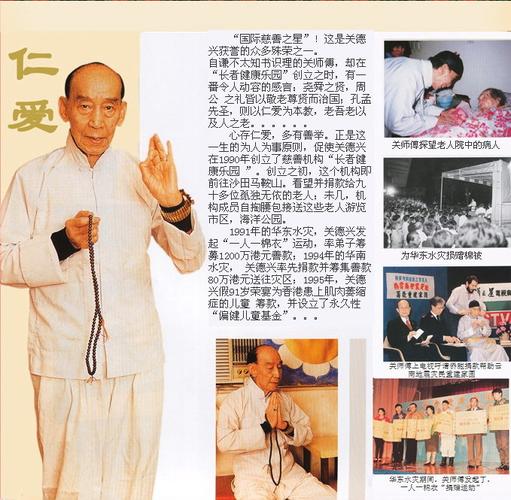 仁
爱
“国际慈善之星”！这是关德
兴获誉的众多殊荣之一。
自谦不太知书识理的关师傅，却在
“长者健康乐园”创立之时，有一
番令人动容的感言；尧舜之贤，周
公 之礼皆以敬老尊贤而治国；孔孟
先圣，则以仁爱为本教，老吾老以
及人之老。。。。。。
心存仁爱，多有善举。正是这
一生的为人为事原则，促使关德兴
在1990年创立了慈善机构“长者健
康乐园 ”。创立之初，这个机构即
前往沙田马鞍山。看望并捐款给九
十多位孤独无依的老人；未几，机
构成员自掏腰包接送这些老人游览
市区，海洋公园。
1991年的华东水灾，关德兴发
起“一人一棉衣”运动，率弟子筹
募1200万港元善款；1994年的华南
水灾， 关德兴率先捐款并筹集善款
80万港元送往灾区；1995年，关德
兴假91岁荣宴为香港患上肌肉萎缩
症的儿童 筹款，并设立了永久性
“偏健儿童基金”。。。
关师傅探望老人院中的病人
为华东水灾捐赠棉被
关师傅上电视吁请侨胞捐款帮助云
南地震灾民重建家园
华东水灾期间，关师傅发起了.
一人一棉衣“捐赠运动”